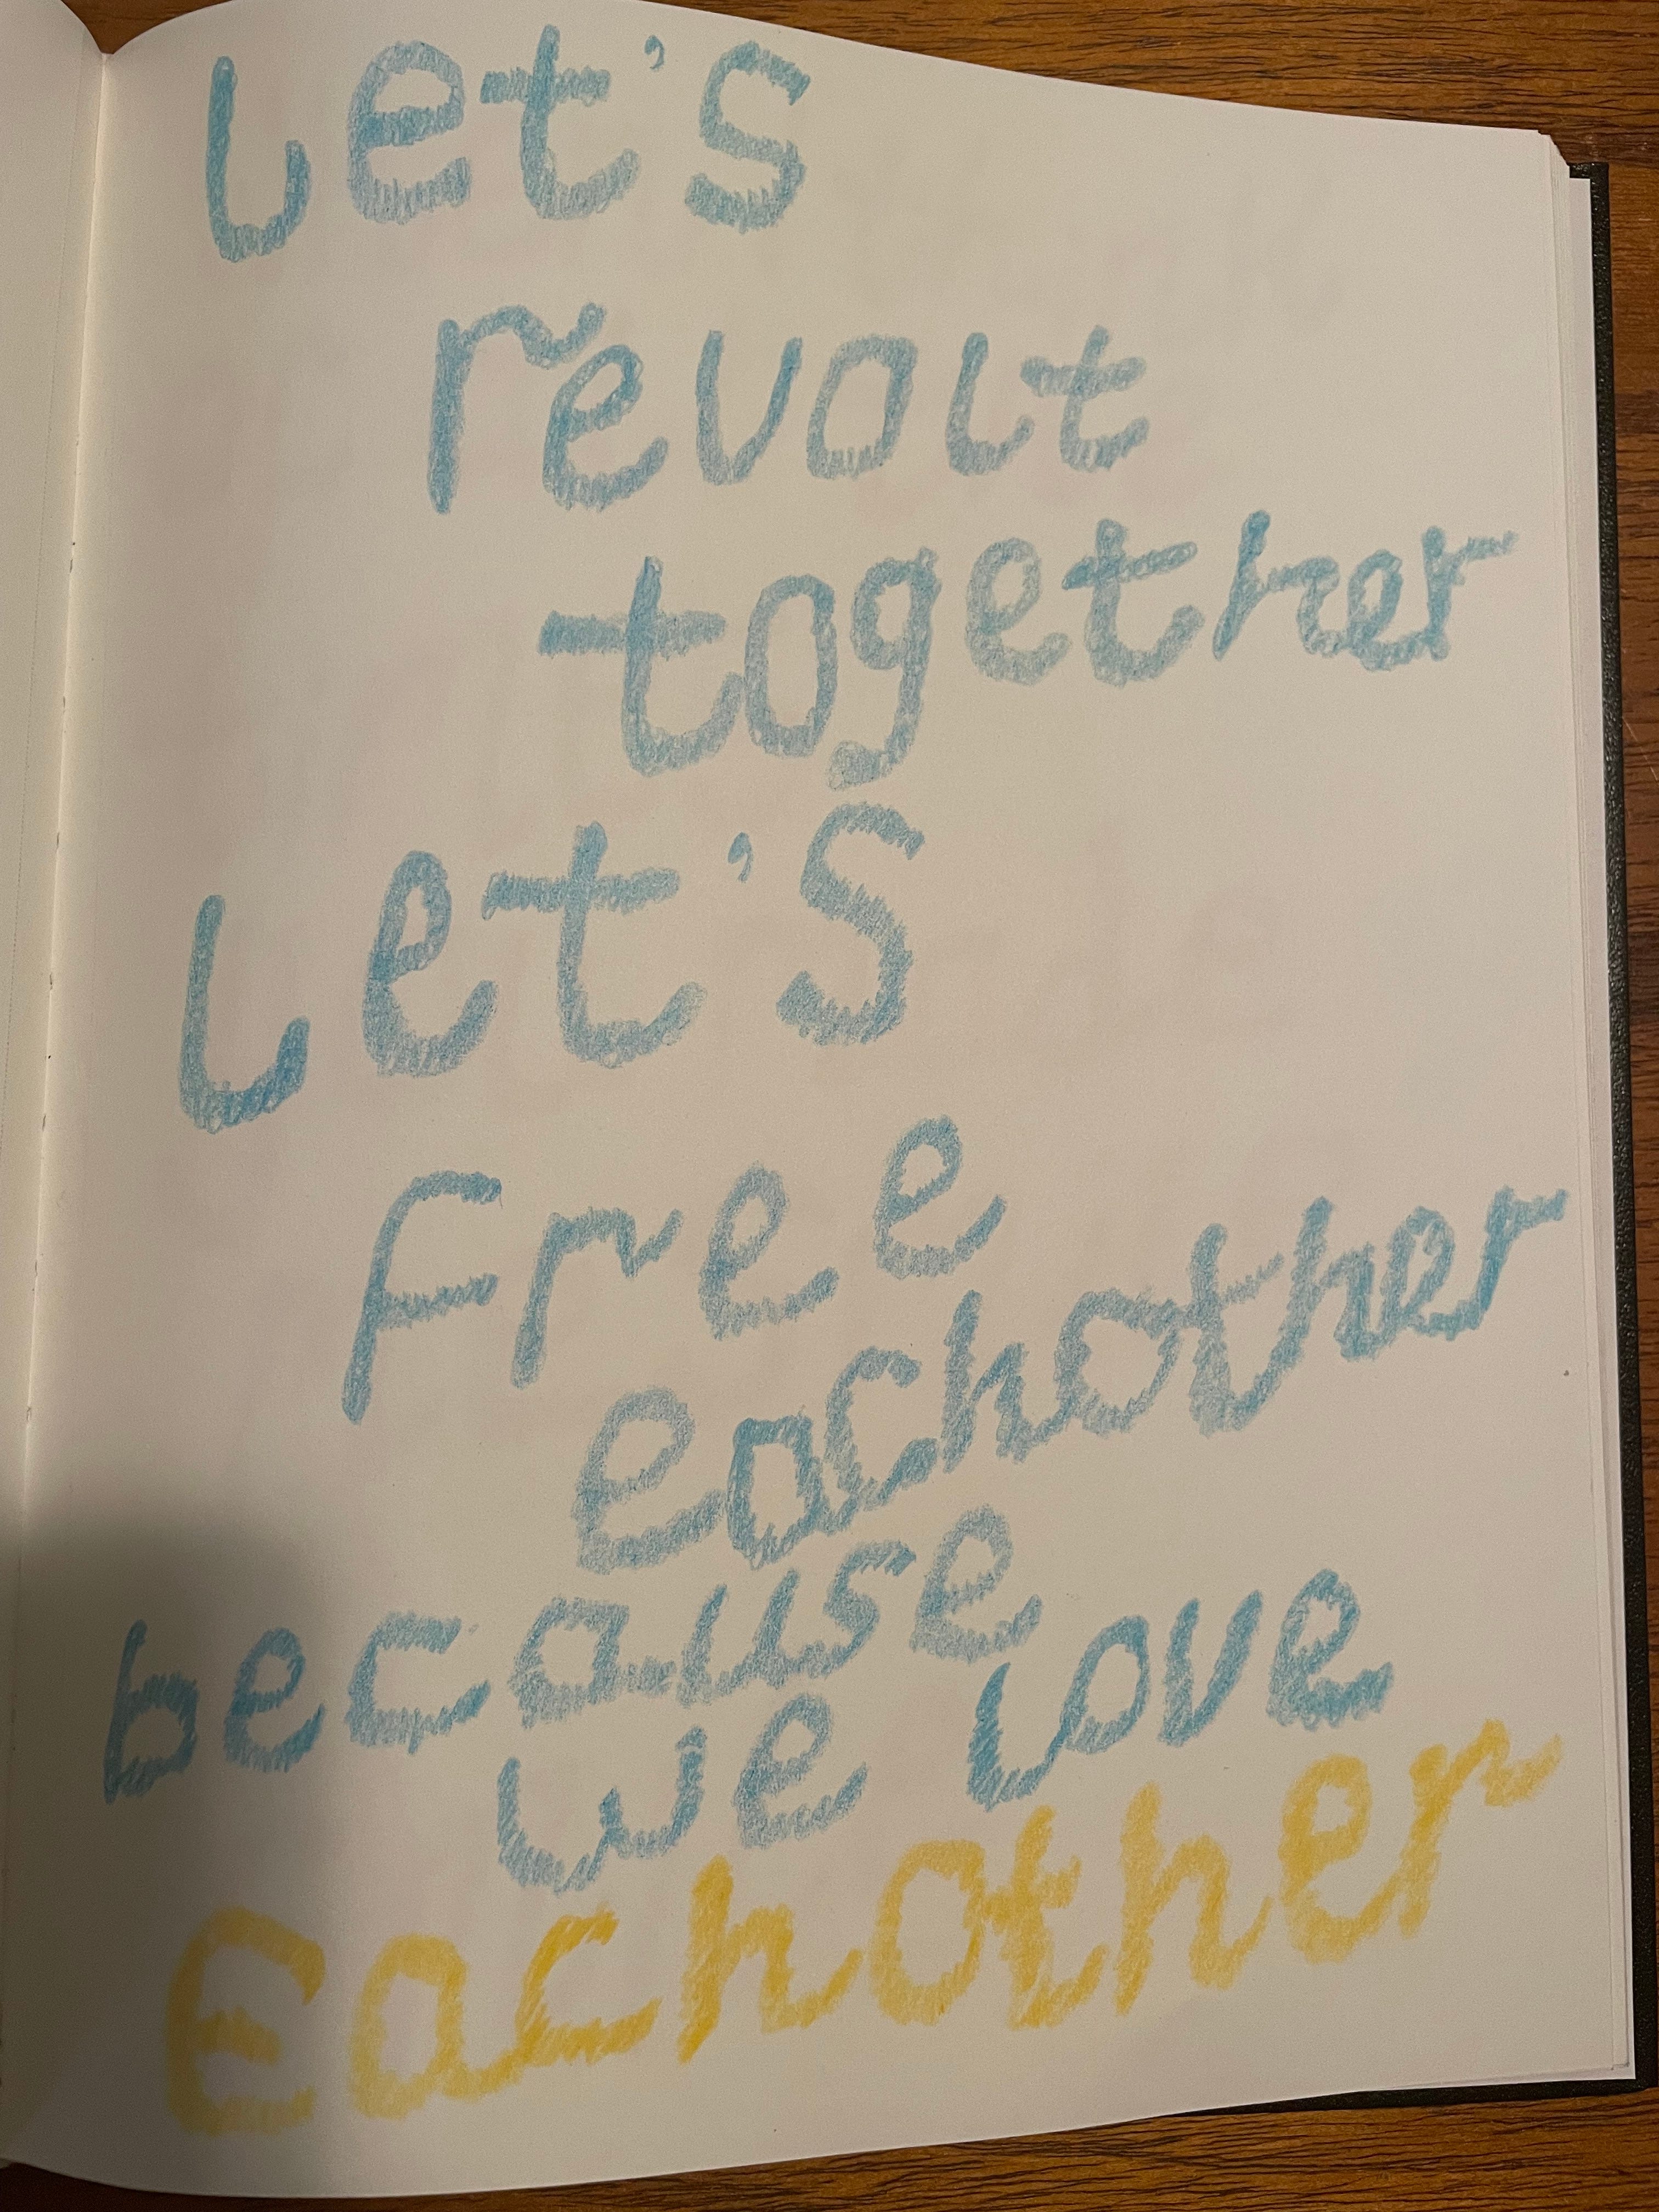 Let's
revolt
together
Let's
Free
eachother
because
we love
Eachother